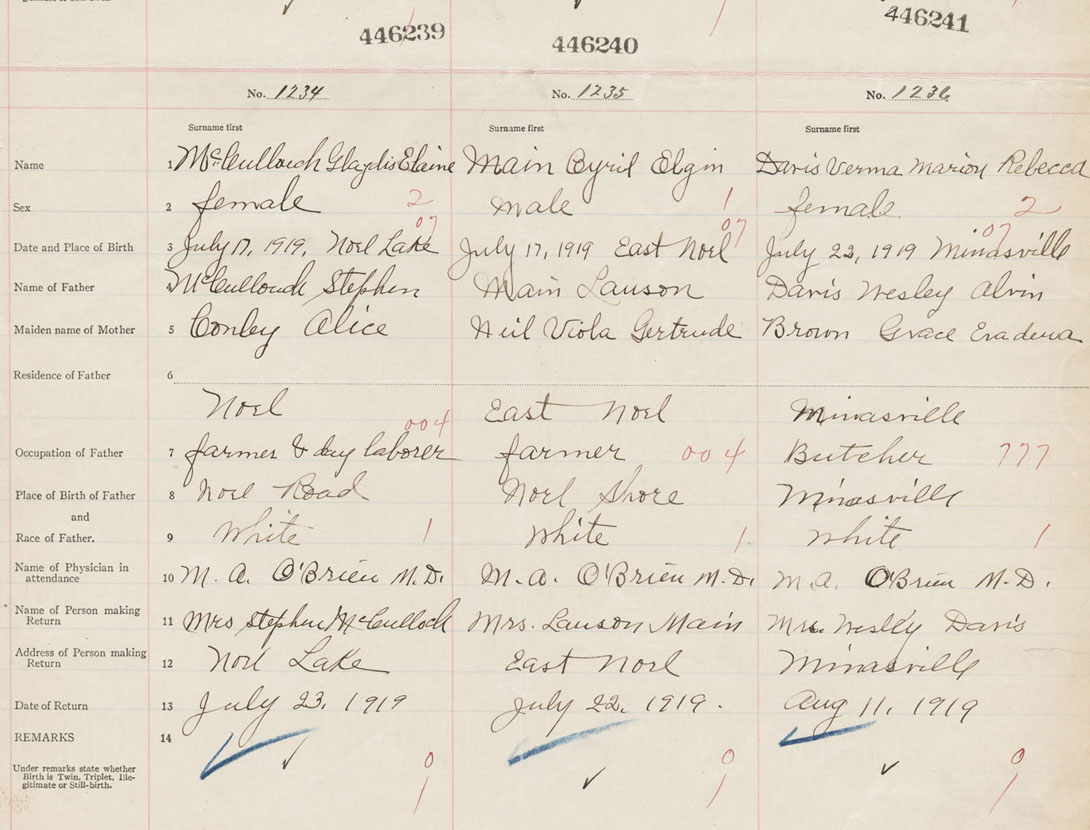 gitimate or Still-birth.
446239 446240 446241
No. 1234 No. 1235 No. 1236
Surname first Surname first Surname first
Name 1 McCullouch Glaydis Elaine Main Cyril Elgin Davis Verma Marion Rebecca
Sex 2 female 2 male 1 female 2
07 07 07
Date and Place of Birth 3 July 17, 1919, Noel Lake July 17, 1919 East Noel July 22, 1919 Minasville
Name of Father 4 McCullouch Stephen Main Lauson Davis Wesley Alvin
Maiden name of Mother 5 Conley Alice Neil Viola Gertrude Brown Grace
Residence of Father 6
Noel East Noel Minasville
004
Occupation of Father 7 farmer & day laborer farmer 004 Butcher 777
Place of Birth of Father 8 Noel Road Noel Shore Minasville
and
Race of Father. 9 White 1 White 1 White 1
Name of Physician in
attendance 10 M. A. O'Brien M.D. M. A. O'Brien M.D. M. A. O'Brien M.D.
Name of Person making
Return 11 Mrs Stephen McCullock Mrs. Lauson Main Mrs. Weslly Davis
Address of Person making
Return 12 Noel Lake East Noel Minasville
Date of Return 13 July 23, 1919 July 22, 1919. Aug 11, 1919
REMARKS 14
Under remarks state whether
Birth is Twin, Triplet, Ille-
gitimate or Still-birth.
0 0 0
1 1 1